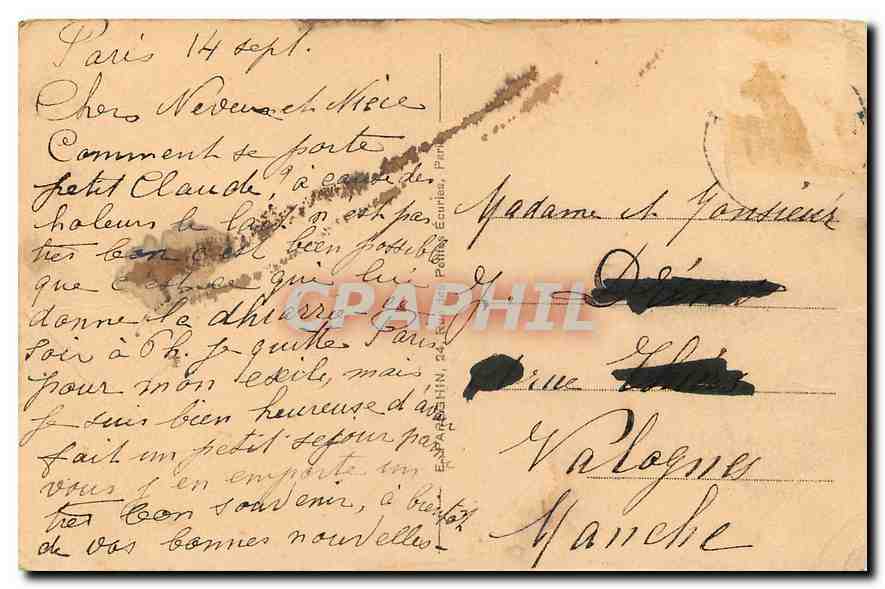 Paris 14 sept.
Chers Neveux et Nièce
Comment se porte
petit Claude, à cause des
haleurs le lait n'est pas
très bon c'est bien possible
que c'est ce qui lui
donne la dhierre ce
soir à Ph. Je quitte Paris
pour mon exile, mais
je suis bien heureuse d'avoir
fait un petit sejour parmi
vous j'en emporte un
très bon souvenir, à bientôt
de vos bonnes nouvelles
E. PAPEGHIN, 24, Rue des Petites Écuries, Paris
CPAPHIL
Madame et Monsieur
J.
rue
Valognes
Manche